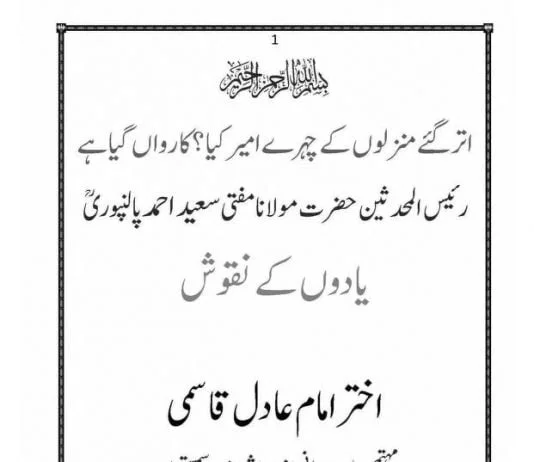 1
بسم الله الرحمن الرحيم
اتر گئے منزلوں کے چہرے امیر کیا؟ کارواں گیا ہے
رئیس المحدثین حضرت مولانا مفتی سعید احمد پالنپوریؒ
یادوں کے نقوش
اختر امام عادل قاسمی